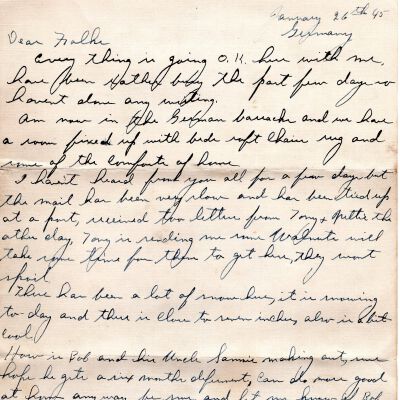 January 26th 45
Germany
Dear Folks
Every thing is going O.K. here with me,
have been rather busy the past few days so
havent done any writing.
Am now in the German barracks and we have
a room fixed up with beds soft chair rug and
some of the comforts of home
I havent heard from you all for a few days but
the mail has been very slow and has been tied up
at a port, received two letters from Tony & Nettie the
other day, Tony is sending me some Walnuts will
take some time for them to get here, they wont
spoil
There has been a lot of snow here, it is snowing
to-day and there is close to seven inches, also is a bit
cool
How is Bob and his Uncle Sammie making out, sure
hope he gets a six months deferment, can do more good
at home any way be sure and let me know if Bob